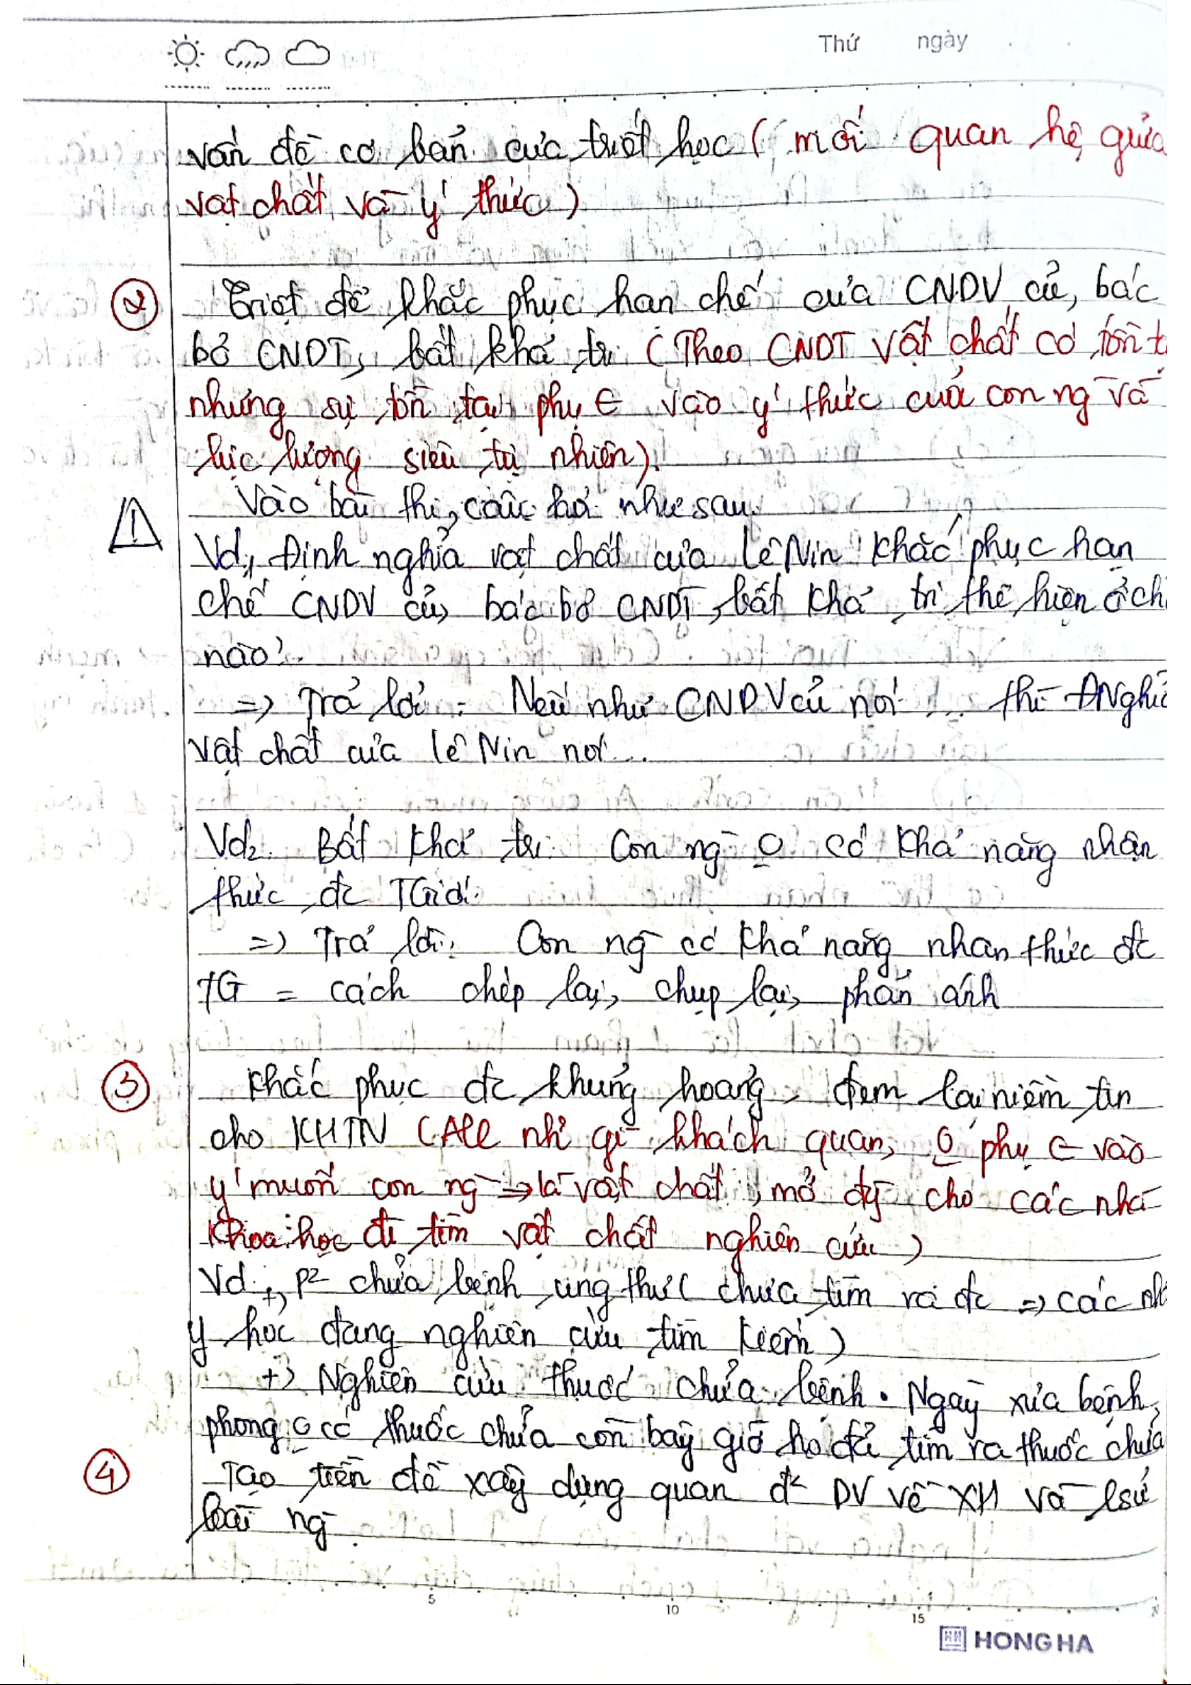 Thứ ngày
vấn đề cơ bản của triết học ( mối quan hệ giữa
vật chất và ý thức )
② Triệt để khắc phục hạn chế của CNDV cũ, bác
bỏ CNDT, bất khả tri (Theo CNDT vật chất có tồn t
nhưng sự tồn tại phụ ∈ vào ý thức của con ng và
lực lượng siêu tự nhiên).
⚠ Vào bài thi, câu hỏi như sau
Vd1, Định nghĩa vật chất của Lê Nin khắc phục hạn
chế CNDV cũ, bác bỏ CNDT, bất khả tri thể hiện ở ch
nào?
=> Trả lời : Nếu như CNDV cũ nói ... thì ĐNghĩ
vật chất của Lê Nin nói ...
Vd2. Bất khả tri: Con ng O có khả năng nhận
thức đc TGiới.
=> Trả lời: Con ng có khả năng nhận thức đc
TG = cách chép lại, chụp lại, phản ánh
③ Khắc phục đc khủng hoảng, đem lại niềm tin
cho KHTN (All nh~ gì khách quan, O phụ ∈ vào
ý muốn con ng -> là vật chất, mở đg cho các nhà
khoa học đi tìm vật chất nghiên cứu )
Vd: +) P² chữa bệnh ung thư ( chưa tìm ra đc => các nh
y học đang nghiên cứu tìm kiếm )
+) Nghiên cứu thuốc chữa bệnh. Ngày xưa bệnh
phong O có thuốc chữa còn bây giờ họ đã tìm ra thuốc chữa
④ Tạo tiền đề xây dựng quan đ² DV về XH và lsử
loài ng .
5 10 15
HONG HA